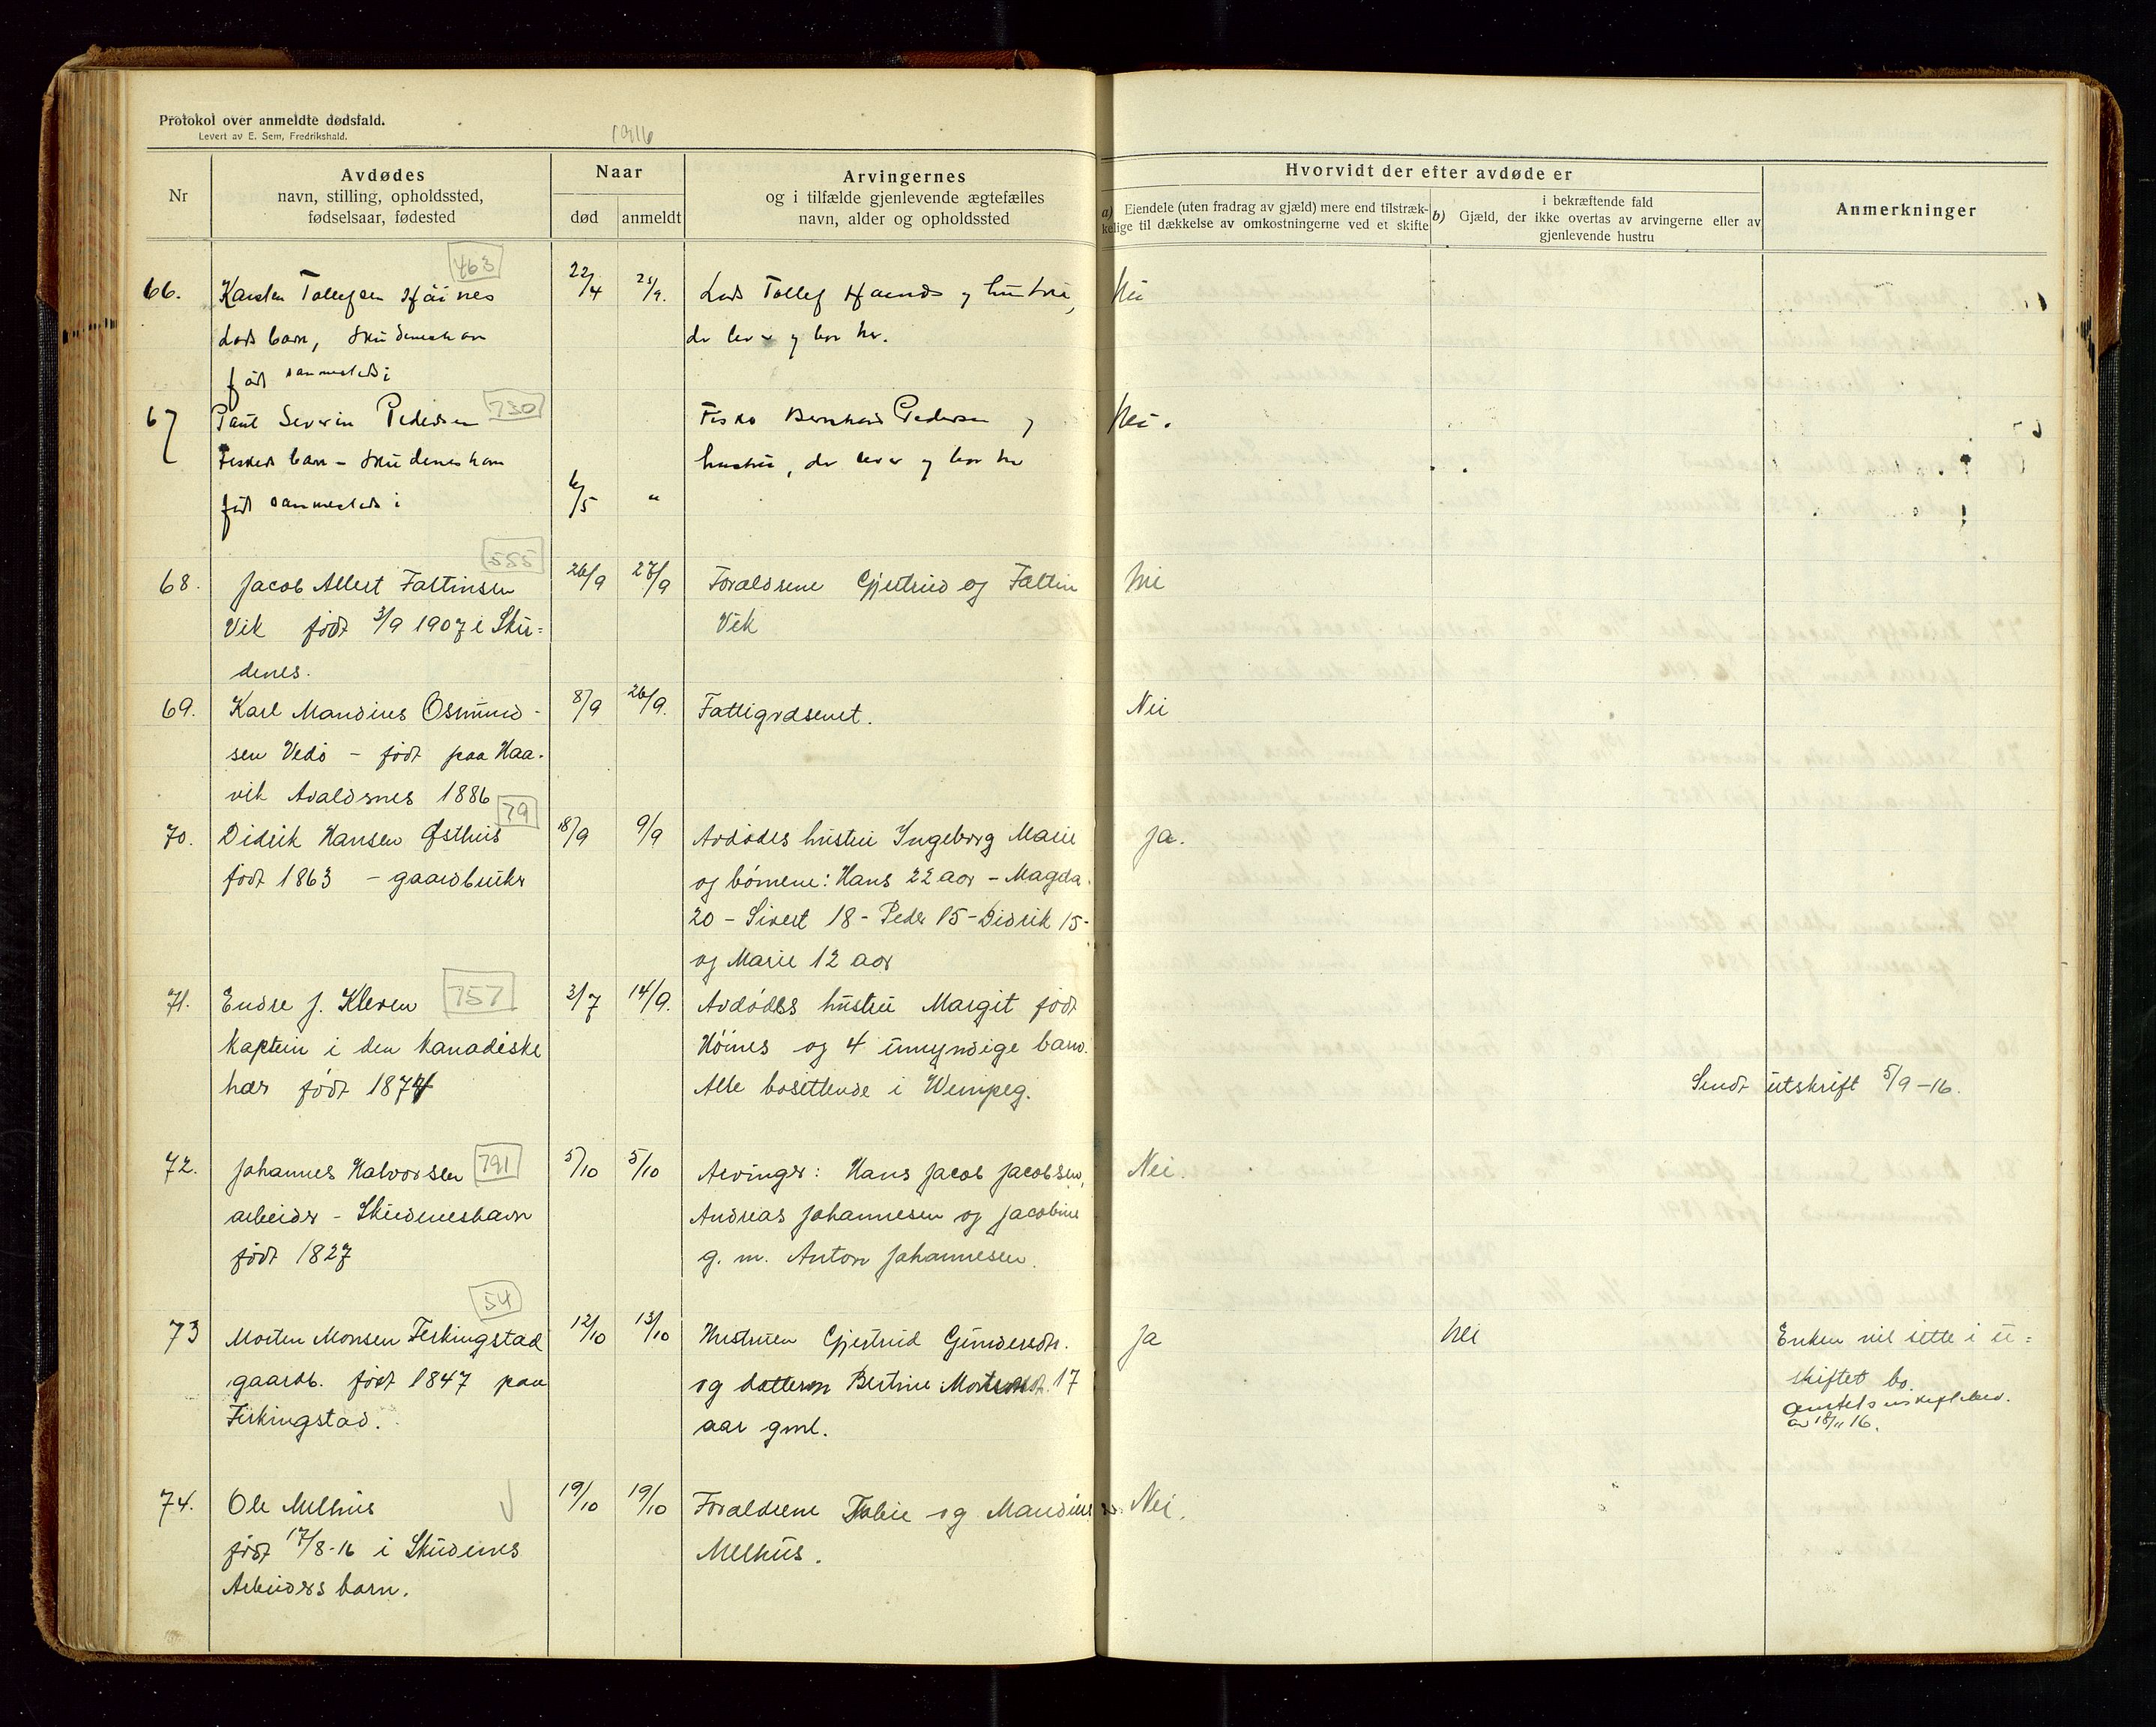 Protokol over anmeldte dødsfald.
Levert av E. Sem, Fredrikshald.
1916
Nr
Avdødes
navn, stilling, opholdssted,
fødselsaar, fødested
Naar
død
anmeldt
Arvingernes
og i tilfælde gjenlevende ægtefælles
navn, alder og opholdssted
Hvorvidt der efter avdøde er
a) Eiendele (uten fradrag av gjæld) mere end tilstræk-
kelige til dækkelse av omkostningerne ved et skifte
b) i bekræftende fald
Gjæld, der ikke overtas av arvingerne eller av
gjenlevende hustru
Anmerkninger
463
66. Karsten Tollefsen Høines 22/4 Lods Tollef og hustru, Nei
Lods barn, Skudeneshavn
der lever og bor her.
født sammesteds
67 Paul Severin Pedersen 730 Fisker Bernhard Pedersen og Nei.
Fiskers barn – Skudeneshavn
hustru, der lever og bor her
født sammesteds 6/5 "
555
68. Jacob Albert Faltinsen 26/9 27/9 Foraldrene Gjertrud og Faltin Nei
Vik født 3/9 1907 i Sku=
Vik
denes.
69. Karl Mandius Osmund- 8/9 26/9. Fattigvæsenet. Nei
sen Vedø – født paa Haa-
vik Avaldsnes 1886
79
70. Didrik Hansen Østhus 18/9 9/9 Avdødes hustru Ingeborg Marie Ja.
født 1863 – gaardbruker
og børnene: Hans 22 aar – Magda
20 – Sivert 18 – Peder 15 – Didrik 15-
og Marie 12 aar
71. Endre J. Kleven 757 3/7 14/9. Avdødes hustru Margit født
kaptein i den kanadiske
Høines og 4 umyndige barn.
hær født 1874
Alle bosittende i Wenipeg.
Sendt utskrift 5/9-16.
72. Johannes Halvorsen 791 5/10 5/10 Arvinger: Hans Jacob Jacobsen, Nei.
arbeider – Skudeneshavn
Andreas Johannesen og Jacobine
født 1827
g. m. Anton Johannesen.
54
73 Morten Monsen Ferkingstad 12/10 13/10 Hustruen Gjertrud Gundersdtr. Ja Nei Enken vil sitte i u=
gaardb. født 1847 paa
og datteren Bertine Mortensdt. 17
skiftet bo.
Ferkingstad.
aar gml.
av 18/11 16.
74. Ole Melhus 19/10 19/10 Foraldrene Tabie og Mandius Nei.
født 17/8-16 i Skudenes
Melhus.
Arbeiders barn.